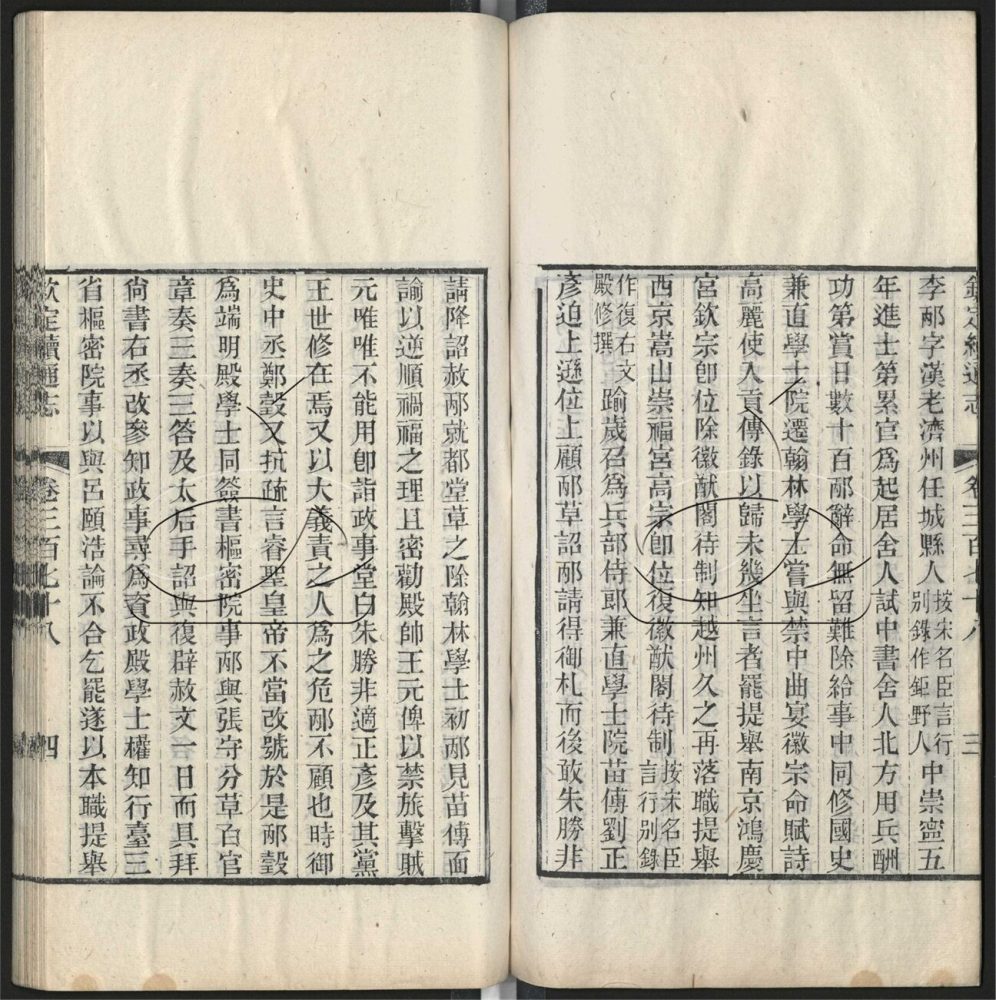 欽定續通志 卷三百七十八 三
李邴字漢老濟州任城縣人按宋名臣言行别錄作鉅野人中崇寧五
年進士第累官爲起居舍人試中書舍人北方用兵酬
功第賞日數十百邴辭命無留難除給事中同修國史
兼直學士院遷翰林學士嘗與禁中曲宴徽宗命賦詩
高麗使入貢傳錄以歸未幾坐言者罷提舉南京鴻慶
宮欽宗卽位除徽猷閣待制知越州久之再落職提舉
西京嵩山崇福宮高宗卽位復徽猷閣待制按宋名臣言行别錄
作復右文殿修撰踰歲召爲兵部侍郎兼直學士院苗傅劉正
彥迫上遜位上顧邴草詔邴請得御札而後敢朱勝非
請降詔赦邴就都堂草之除翰林學士初邴見苗傅面
諭以逆順禍福之理且密勸殿帥王元俾以禁旅擊賊
元唯唯不能用卽詣政事堂白朱勝非適正彥及其黨
王世修在焉又以大義責之人爲之危邴不顧也時御
史中丞鄭瑴又抗疏言睿聖皇帝不當改號於是邴瑴
爲端明殿學士同簽書樞密院事邴與張守分草百官
章奏三奏三答及太后手詔與復辟赦文一日而具拜
尙書右丞改參知政事尋爲資政殿學士權知行臺三
省樞密院事以與呂頤浩論不合乞罷遂以本職提舉
欽定續通志 卷三百七十八 四